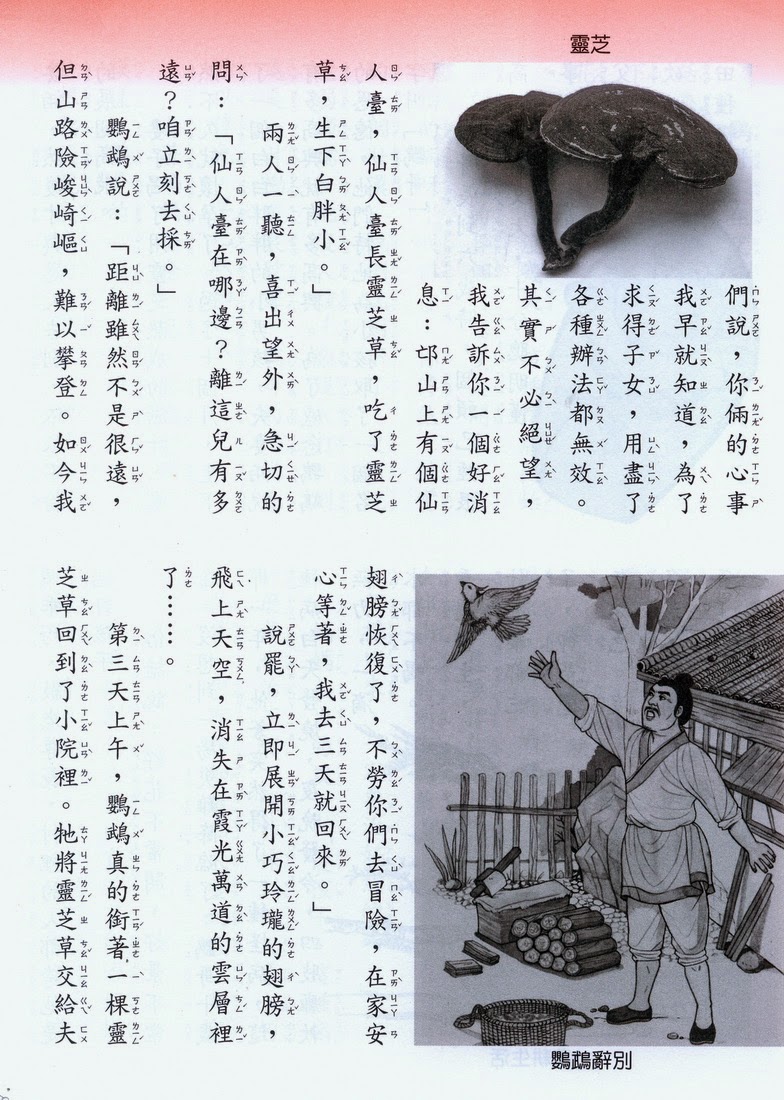 靈芝
們說，你倆的心事
我早就知道，為了
求得子女，用盡了
各種辦法都無效。
其實不必絕望，
我告訴你一個好消
息：邙山上有個仙
人臺，仙人臺長靈芝草，吃了靈芝
草，生下白胖小。」
兩人一聽，喜出望外，急切的
問：「仙人臺在哪邊？離這兒有多
遠？咱立刻去採。」
鸚鵡說：「距離雖然不是很遠，
但山路險峻崎嶇，難以攀登。如今我
翅膀恢復了，不勞你們去冒險，在家安
心等著，我去三天就回來。」
說罷，立即展開小巧玲瓏的翅膀，
飛上天空，消失在霞光萬道的雲層裡
了……。
第三天上午，鸚鵡真的銜著一棵靈
芝草回到了小院裡。牠將靈芝草交給夫
鸚鵡辭別